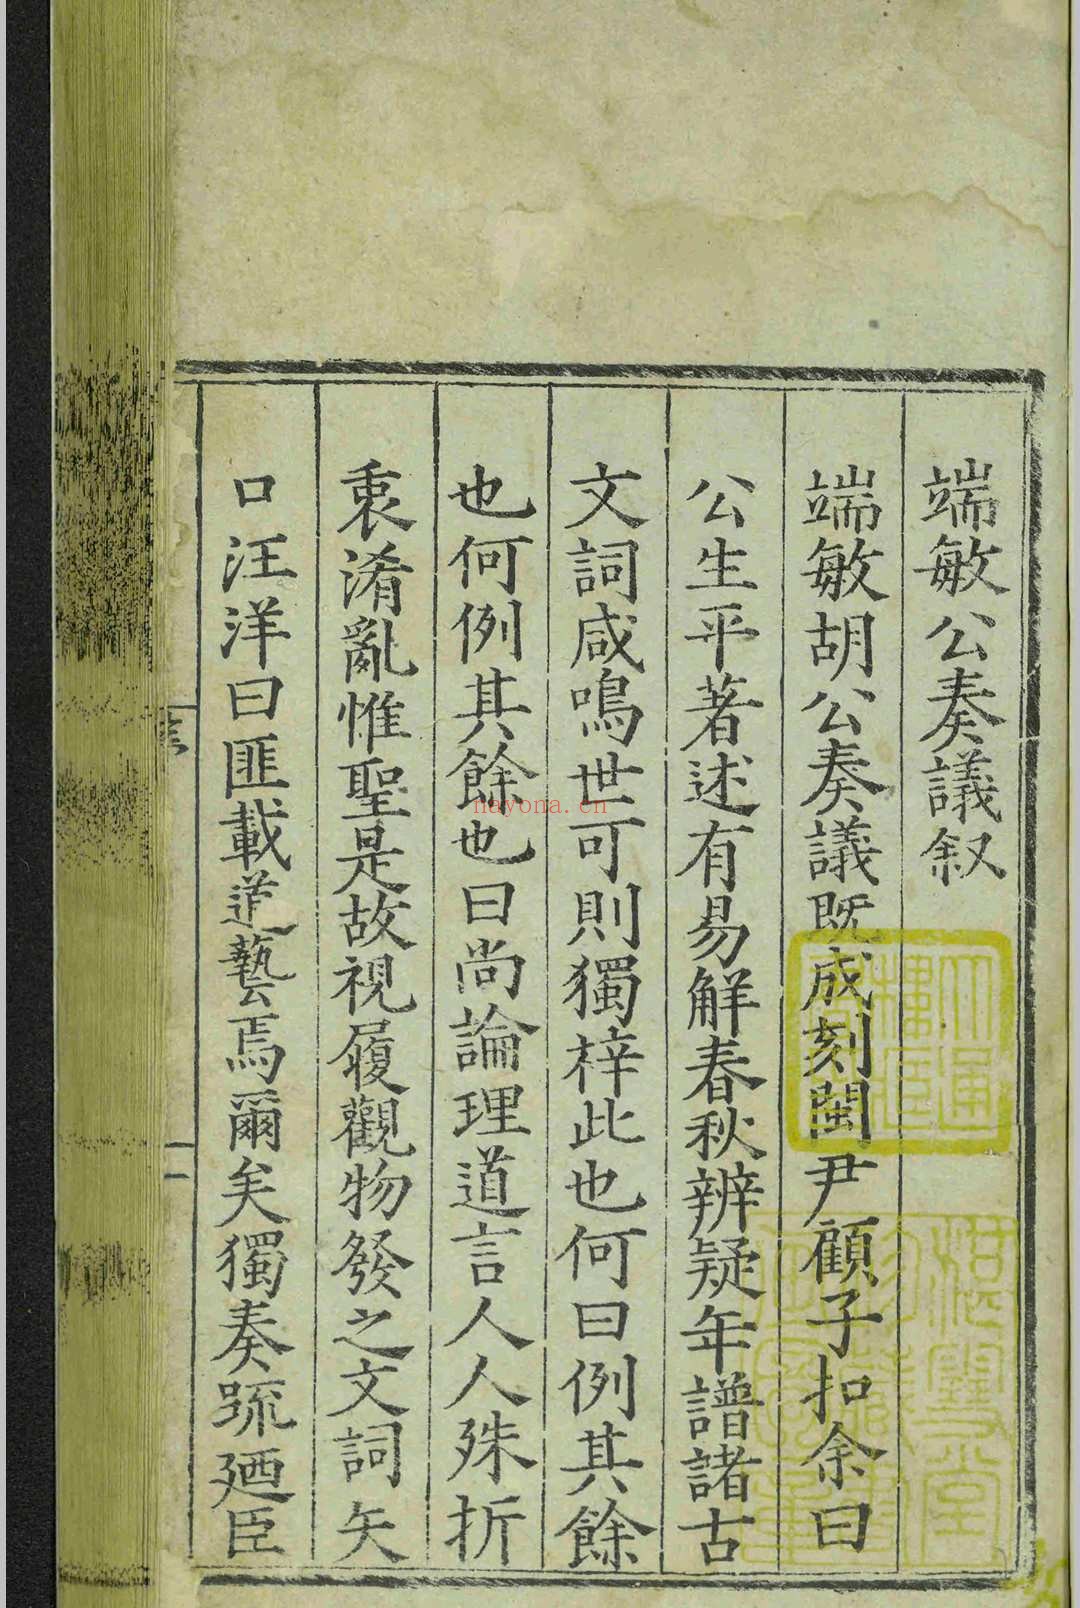 端敏公奏議叙
端敏胡公奏議既成刻閩尹顧子扣余曰
公生平著述有易解春秋辨疑年譜諸古
文詞咸鳴世可則獨梓此也何曰例其餘
也何例其餘也曰尚論理道言人人殊折
衷淆亂惟聖是故視履觀物發之文詞矢
口汪洋曰匪載道藝焉爾矣獨奏疏廼臣
nayona.cn